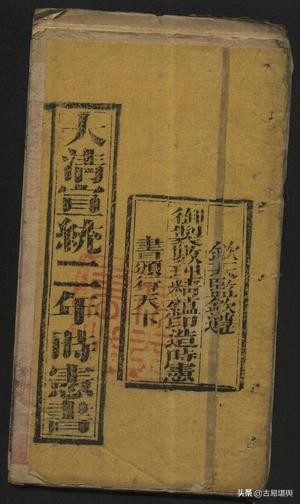 欽天監欽遵
御製數理精蘊印造時憲
書頒行天下
大清宣統二年時憲書
头条 @古易堪舆